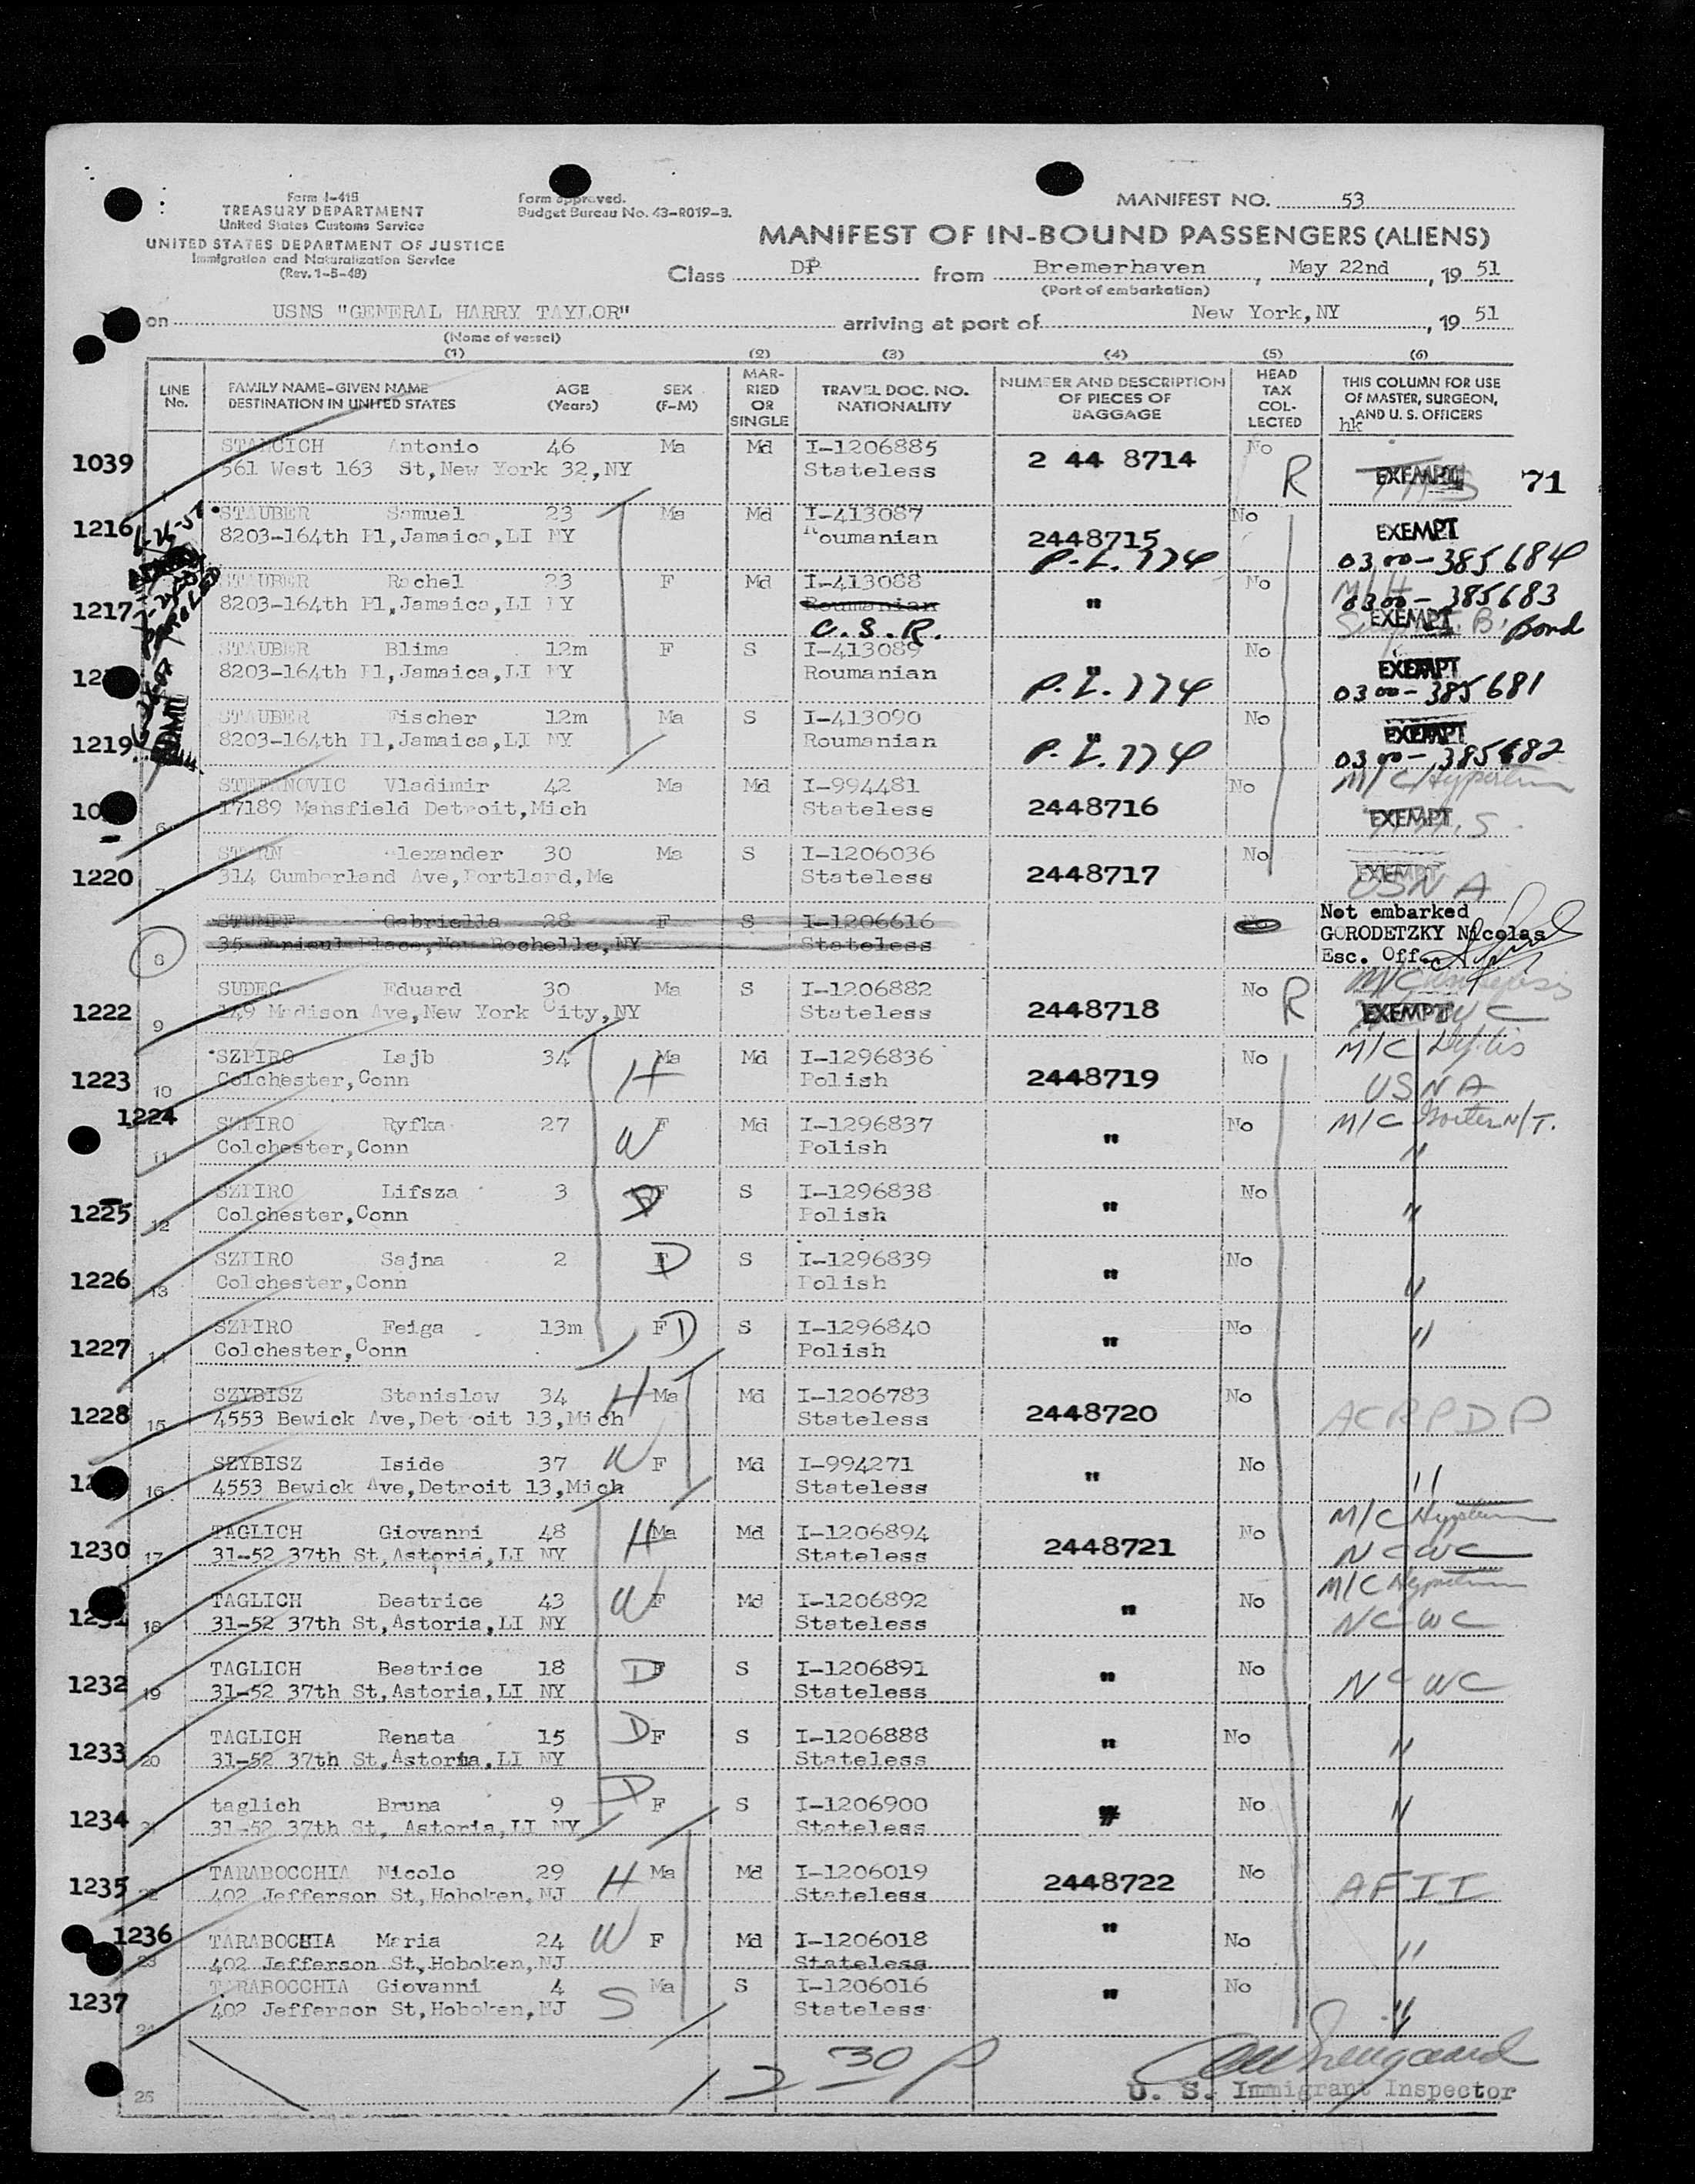 Form I-415
TREASURY DEPARTMENT
United States Customs Service
UNITED STATES DEPARTMENT OF JUSTICE
Immigration and Naturalization Service
(Rev. 1-5-48)
Form approved.
Budget Bureau No. 43-R019-3.
MANIFEST NO. 53
MANIFEST OF IN-BOUND PASSENGERS (ALIENS)
Class DP from Bremerhaven, May 22nd, 1951
(Port of embarkation)
on USNS "GENERAL HARRY TAYLOR" arriving at port of New York,NY, 1951
(Name of vessel)
(1) (2) (3) (4) (5) (6)
LINE No. FAMILY NAME-GIVEN NAME DESTINATION IN UNITED STATES AGE (Years) SEX (F-M) MARRIED OR SINGLE TRAVEL DOC. NO. NATIONALITY NUMBER AND DESCRIPTION OF PIECES OF BAGGAGE HEAD TAX COLLECTED THIS COLUMN FOR USE OF MASTER, SURGEON, AND U. S. OFFICERS
hk
1039 STANCICH Antonio 46 Ma Md I-1206885 2 44 8714 No R EXEMPT 71
561 West 163 St,New York 32,NY Stateless
1216 STAUBER Samuel 23 Ma Md I-413087 2448715 No EXEMPT
8203-164th Pl,Jamaica,LI NY Roumanian P.L. 774 0300-385684
1217 STAUBER Rachel 23 F Md I-413088 " No 0300-385683
8203-164th Pl,Jamaica,LI NY Roumanian EXEMPT Bond
C.S.R.
STAUBER Blima 12m F S I-413089 " No EXEMPT
8203-164th Pl,Jamaica,LI NY Roumanian P.L. 774 0300-385681
1219 STAUBER Fischer 12m Ma S I-413090 " No EXEMPT
8203-164th Pl,Jamaica,LI NY Roumanian P.L. 774 0300-385682
6 Vladimir 42 Ma Md I-994481 2448716 No M/C
17189 Mansfield Detroit,Mich Stateless EXEMPT
1220 STERN Alexander 30 Ma S I-1206036 2448717 No EXEMPT
314 Cumberland Ave,Portland,Me Stateless USNA
8 STUMPF Gabriella 28 F S I-1206616 Not embarked
Place,New Rochelle,NY Stateless GORODETZKY Nicolas
Esc. Off.
1222 9 SUDEC Eduard 30 Ma S I-1206882 2448718 No R M/C
149 Madison Ave,New York City,NY Stateless EXEMPT
1223 10 SZPIRO Lajb 34 H Ma Md I-1296836 2448719 No M/C
Colchester,Conn Polish USNA
1224 11 SZPIRO Ryfka 27 W F Md I-1296837 " No M/C Goiter N/T.
Colchester,Conn Polish "
1225 12 SZPIRO Lifsza 3 D F S I-1296838 " No "
Colchester,Conn Polish
1226 13 SZPIRO Sajna 2 D F S I-1296839 " No "
Colchester,Conn Polish
1227 14 SZPIRO Feiga 13m F D S I-1296840 " No "
Colchester,Conn Polish
1228 15 SZYBISZ Stanislaw 34 H Ma Md I-1206783 2448720 No ACRPDP
4553 Bewick Ave,Detroit 13,Mich Stateless
16 SZYBISZ Iside 37 W F Md I-994271 " No "
4553 Bewick Ave,Detroit 13,Mich Stateless
1230 17 TAGLICH Giovanni 48 H Ma Md I-1206894 2448721 No M/C
31-52 37th St,Astoria,LI NY Stateless NCWC
18 TAGLICH Beatrice 43 W F Md I-1206892 " No M/C
31-52 37th St,Astoria,LI NY Stateless NCWC
1232 19 TAGLICH Beatrice 18 D F S I-1206891 " No NCWC
31-52 37th St,Astoria,LI NY Stateless
1233 20 TAGLICH Renata 15 D F S I-1206888 " No "
31-52 37th St,Astoria,LI NY Stateless
1234 21 taglich Bruna 9 D F S I-1206900 " No "
31-52 37th St, Astoria,LI NY Stateless
1235 22 TARABOCCHIA Nicolo 29 H Ma Md I-1206019 2448722 No AFII
402 Jefferson St,Hoboken,NJ Stateless
1236 23 TARABOCHIA Maria 24 W F Md I-1206018 " No "
402 Jefferson St,Hoboken,NJ Stateless
1237 24 TARABOCCHIA Giovanni 4 S Ma S I-1206016 " No "
402 Jefferson St,Hoboken,NJ Stateless
25 12 30 P
U. S. Immigrant Inspector